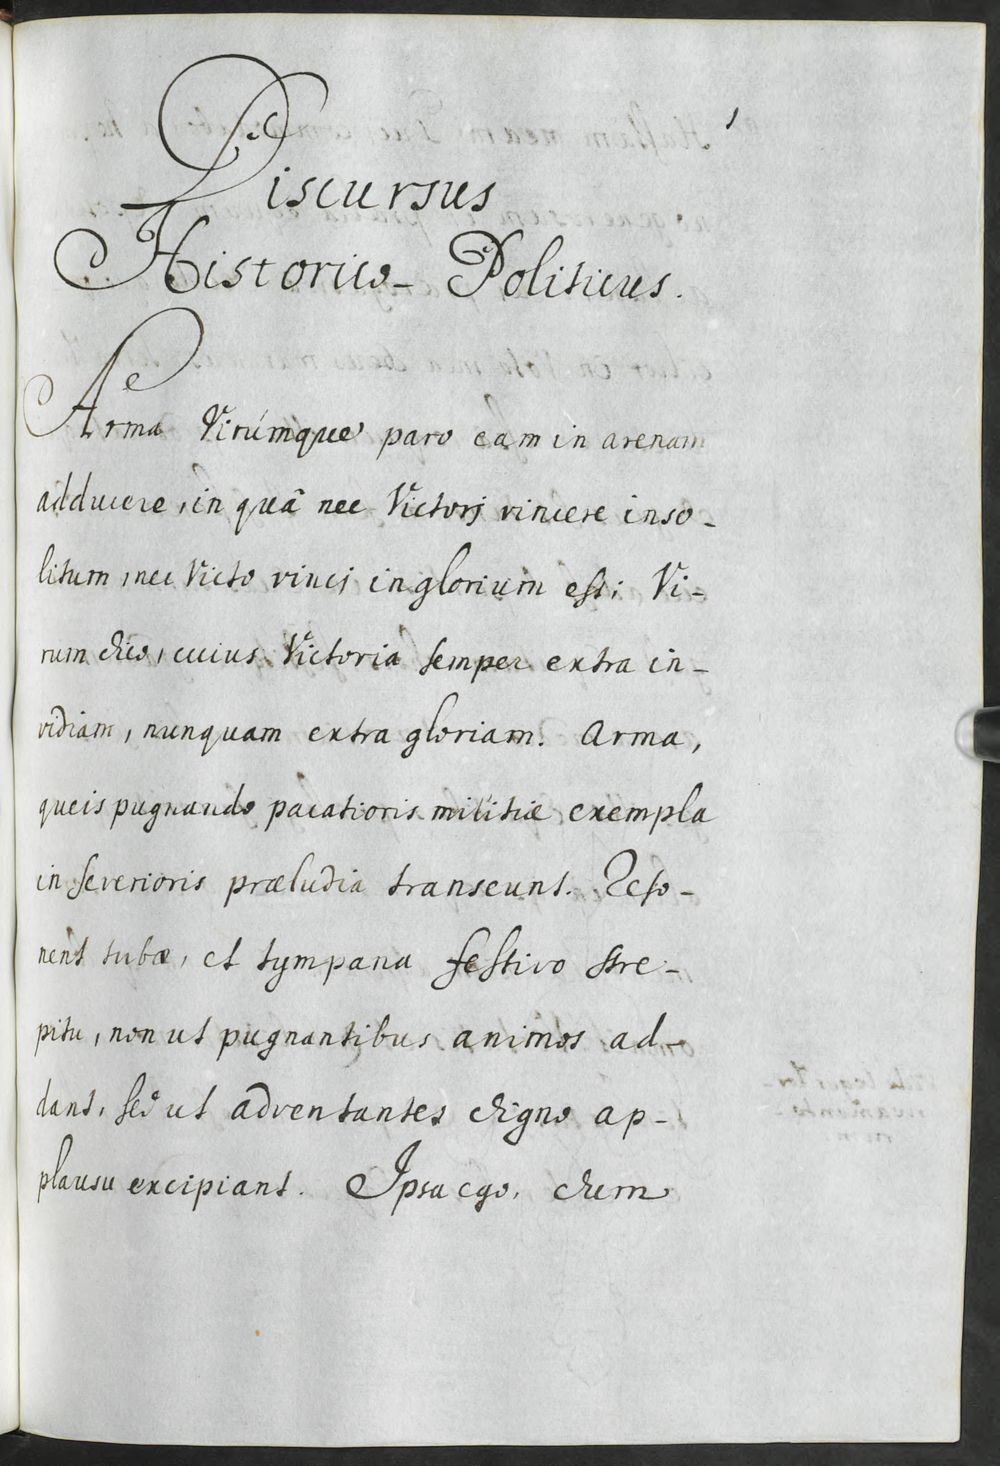 1
Discursus
Historico-Politicus.
Arma Virúmque paro eam in arenam
adducere, in quâ nec Victorj vincere inso-
litum, nec Victo vincj inglorium est; Vi-
rum dico, cuius Victoria semper extra in-
vidiam, nunquam extra gloriam. Arma,
queis pugnando pacatioris militiæ exempla
in severioris præludia transeunt. Reso-
nent tubæ, et tympana festivo stre-
pitu, non ut pugnantibus animos ad-
dant, sed ut adventantes digno ap-
plausu excipiant. Ipsa ego, dum